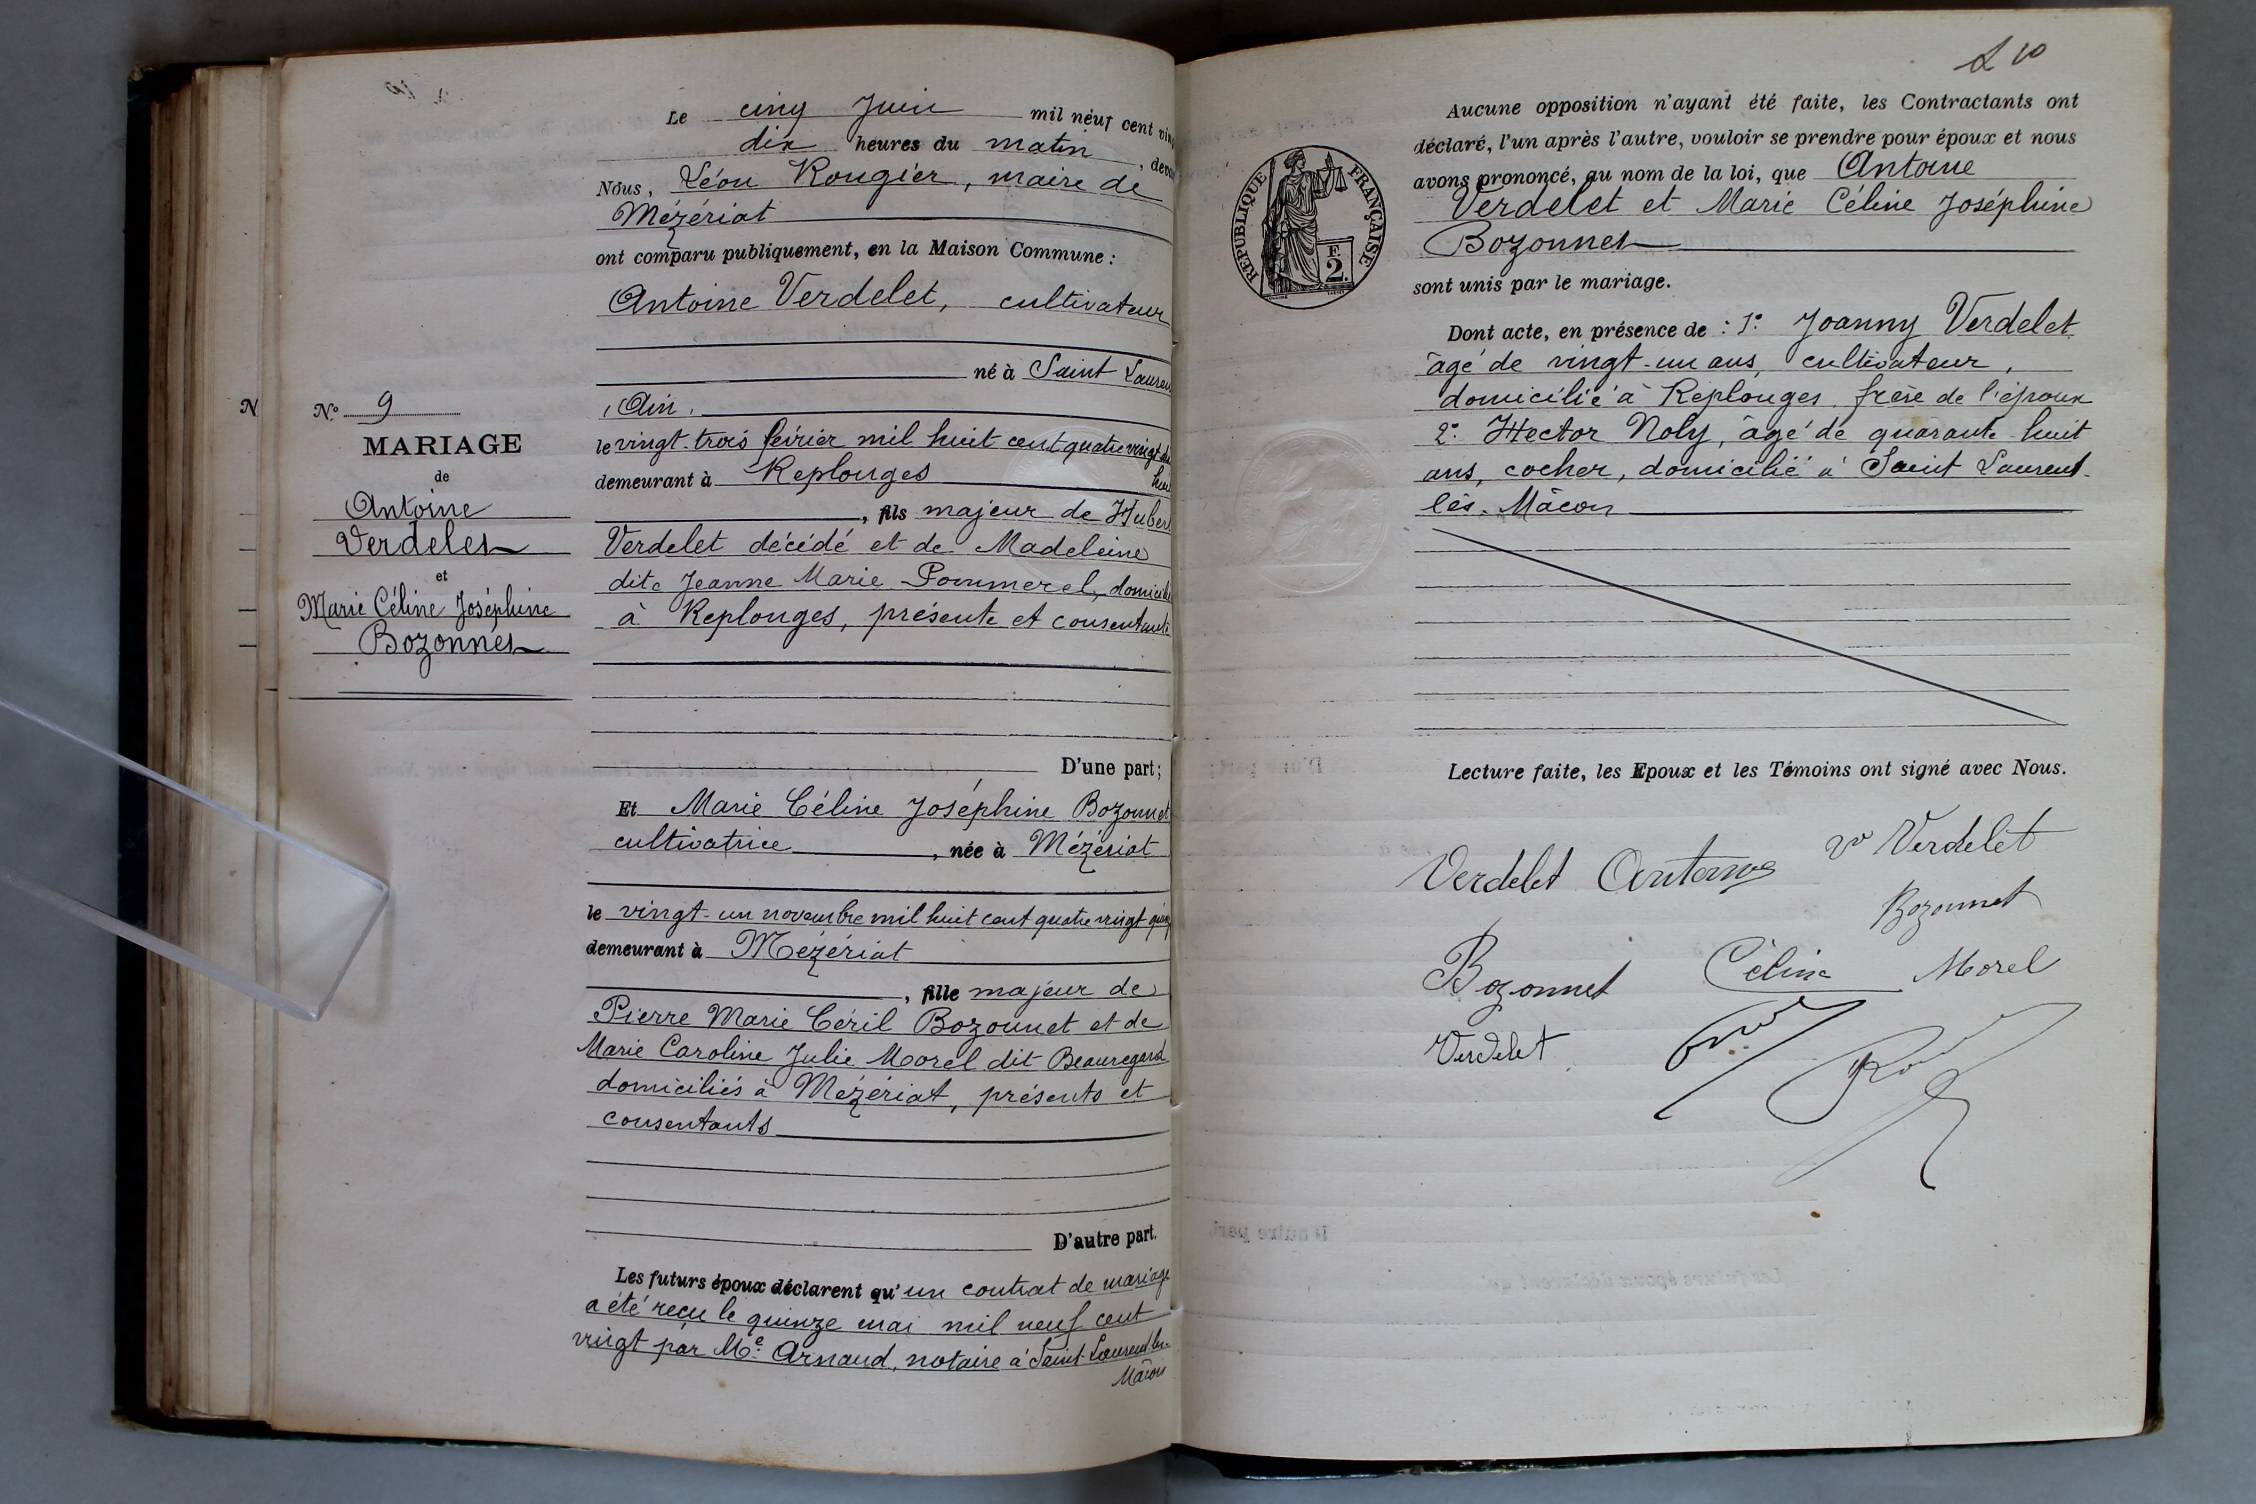 Le cinq Juin mil neuf cent vin
dix heures du matin, deva
Nous, Léon Rougier, maire de
Mézériat
ont comparu publiquement, en la Maison Commune :
Antoine Verdelet, cultivateur
né à Saint Lauren
(Ain)
le vingt-trois février mil huit cent quatre vingt dix
huit
demeurant à Replonges
, fils majeur de Hubert
Verdelet décédé et de Madeleine
dite Jeanne Marie Pommerel, domiciliée
à Replonges, présente et consentante
D'une part;
Et Marie Céline Joséphine Bozonnet
cultivatrice, née à Mézériat
le vingt-un novembre mil huit cent quatre vingt quinz
demeurant à Mézériat
, fille majeur de
Pierre Marie Céril Bozonnet et de
Marie Caroline Julie Morel dit Beauregard
domiciliés à Mézériat, présents et
consentants
D'autre part.
Les futurs époux déclarent qu'un contrat de mariage
a été reçu le quinze mai mil neuf cent
vingt par Me Arnaud, notaire à Saint-Laurent-les-
Mâcon
N
N° 9
MARIAGE
de
Antoine
Verdelet
et
Marie Céline Joséphine
Bozonnet
10
Aucune opposition n'ayant été faite, les Contractants ont
déclaré, l'un après l'autre, vouloir se prendre pour époux et nous
avons prononcé, au nom de la loi, que Antoine
Verdelet et Marie Céline Joséphine
Bozonnet
sont unis par le mariage.
RÉPUBLIQUE FRANÇAISE
F.
2.
Dont acte, en présence de : 1° Joanny Verdelet
âgé de vingt-un ans, cultivateur,
domicilié à Replonges, frère de l'époux
2° Hector Noly, âgé de quarante-huit
ans, cocher, domicilié à Saint Laurent-
lès-Mâcon
Lecture faite, les Epoux et les Témoins ont signé avec Nous.
Verdelet Antoine
Vve Verdelet
Bozonnet
Bozonnet Céline Morel
Verdelet